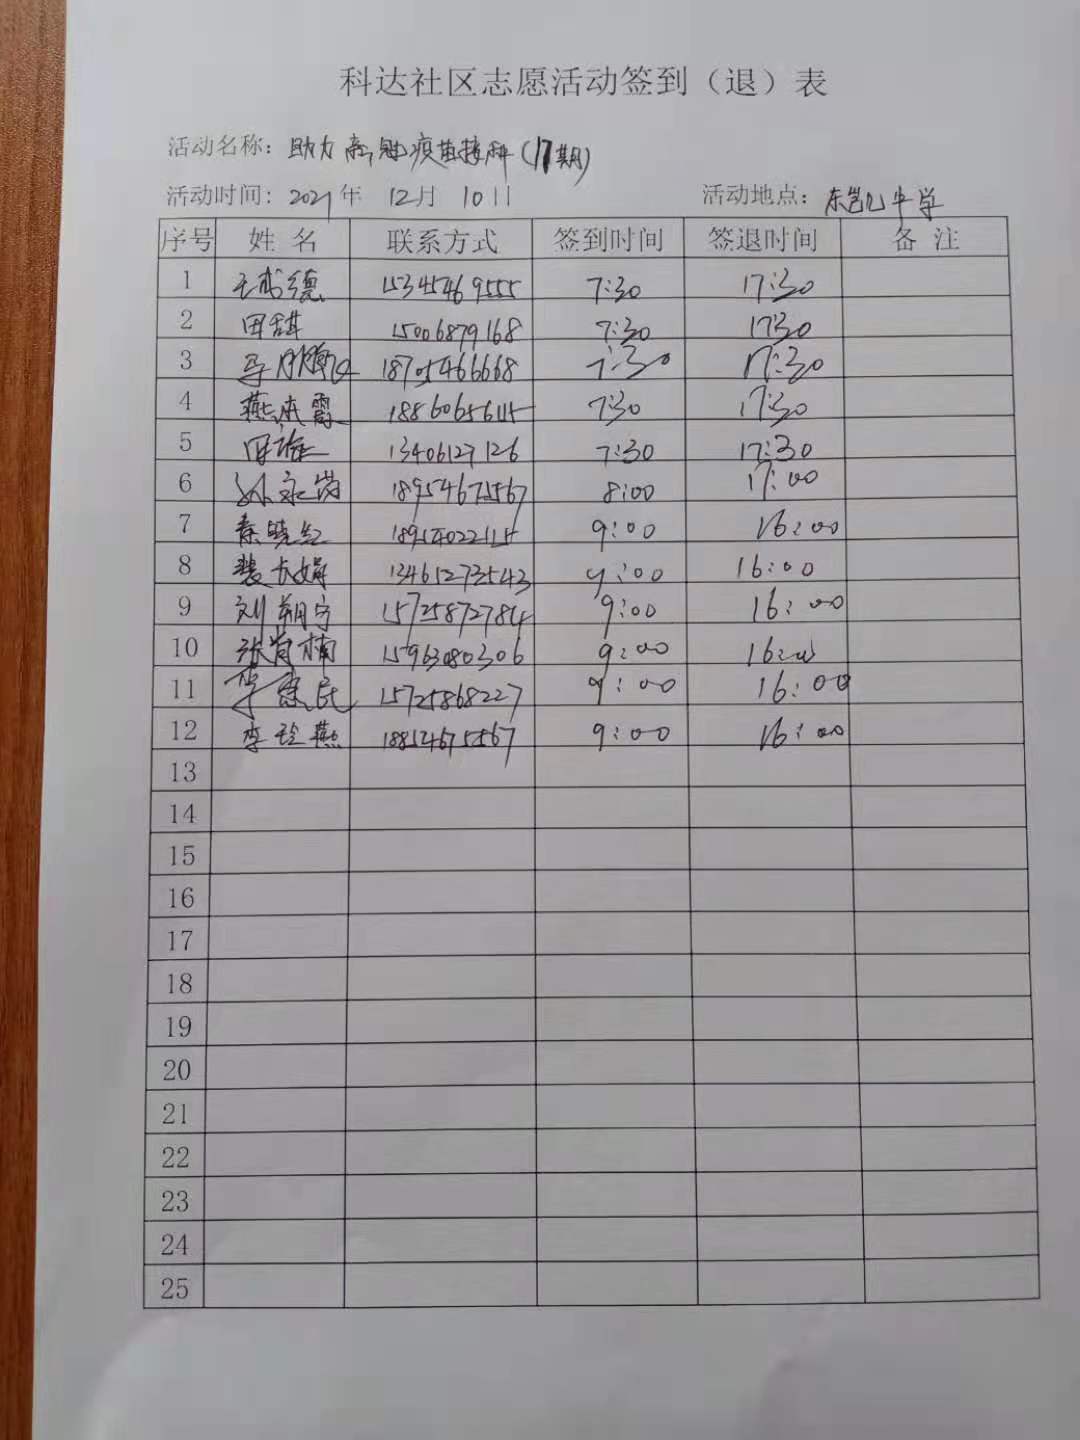 科达社区志愿活动签到（退）表
活动名称：助力新冠疫苗接种（17期）
活动时间：2021年 12月 10日 活动地点：东凯中学
序号 姓 名 联系方式 签到时间 签退时间 备 注
1 15345469555 7:30 17:30
2 15006879168 7:30 17:30
3 18705466668 7:30 17:30
4 燕本霞 18860656115 7:30 17:30
5 13406127126 7:30 17:30
6 18954675567 8:00 17:00
7 秦晓红 18954022115 9:00 16:00
8 裴长娟 13465273543 9:00 16:00
9 刘翔宇 15725872784 9:00 16:00
10 张肖楠 15963080306 9:00 16:00
11 15725868227 9:00 16:00
12 李玲燕 18854675567 9:00 16:00
13
14
15
16
17
18
19
20
21
22
23
24
25